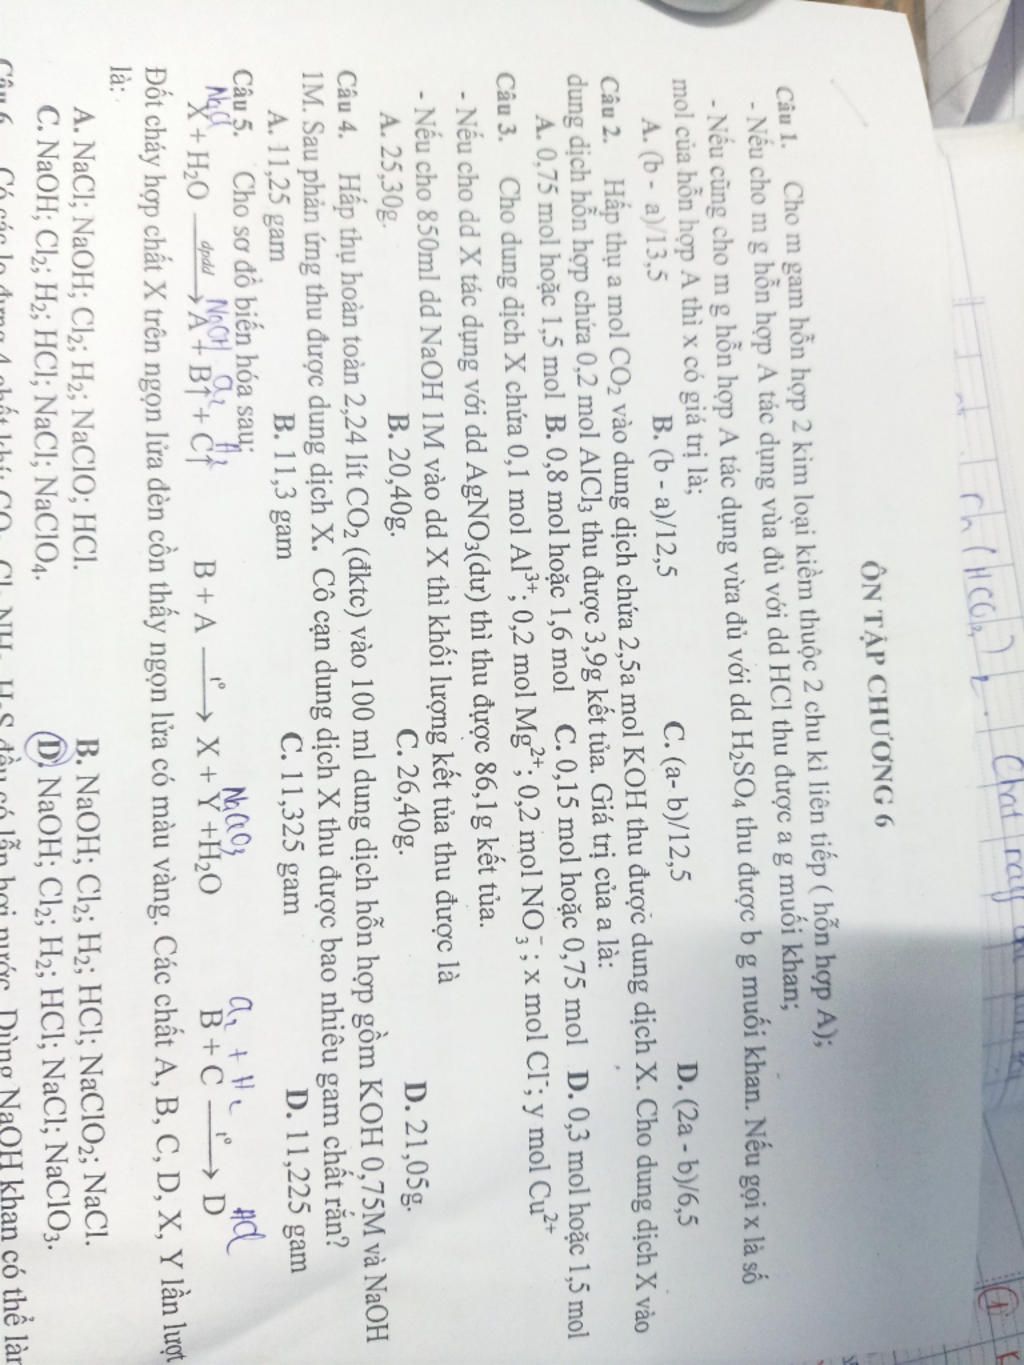 Chất rắn
ÔN TẬP CHƯƠNG 6
Câu 1. Cho m gam hỗn hợp 2 kim loại kiềm thuộc 2 chu kì liên tiếp ( hỗn hợp A);
- Nếu cho m g hỗn hợp A tác dụng vừa đủ với dd HCl thu được a g muối khan;
- Nếu cũng cho m g hỗn hợp A tác dụng vừa đủ với dd H₂SO₄ thu được b g muối khan. Nếu gọi x là số
mol của hỗn hợp A thì x có giá trị là;
A. (b - a)/13,5 B. (b - a)/12,5 C. (a- b)/12,5 D. (2a - b)/6,5
Câu 2. Hấp thụ a mol CO₂ vào dung dịch chứa 2,5a mol KOH thu được dung dịch X. Cho dung dịch X vào
dung dịch hỗn hợp chứa 0,2 mol AlCl₃ thu được 3,9g kết tủa. Giá trị của a là:
A. 0,75 mol hoặc 1,5 mol B. 0,8 mol hoặc 1,6 mol C. 0,15 mol hoặc 0,75 mol D. 0,3 mol hoặc 1,5 mol
Câu 3. Cho dung dịch X chứa 0,1 mol Al³⁺; 0,2 mol Mg²⁺; 0,2 mol NO₃⁻; x mol Cl⁻; y mol Cu²⁺
- Nếu cho dd X tác dụng với dd AgNO₃(dư) thì thu được 86,1g kết tủa.
- Nếu cho 850ml dd NaOH 1M vào dd X thì khối lượng kết tủa thu được là
A. 25,30g. B. 20,40g. C. 26,40g. D. 21,05g.
Câu 4. Hấp thụ hoàn toàn 2,24 lít CO₂ (đktc) vào 100 ml dung dịch hỗn hợp gồm KOH 0,75M và NaOH
1M. Sau phản ứng thu được dung dịch X. Cô cạn dung dịch X thu được bao nhiêu gam chất rắn?
A. 11,25 gam B. 11,3 gam C. 11,325 gam D. 11,225 gam
Câu 5. Cho sơ đồ biến hóa sau;
NaCl NaOH Cl₂ H₂ NaClO₃ Cl₂ + H₂ HCl
X + H₂O dpdd → A + B↑ + C↑ B + A t° → X + Y +H₂O B + C t° → D
Đốt cháy hợp chất X trên ngọn lửa đèn cồn thấy ngọn lửa có màu vàng. Các chất A, B, C, D, X, Y lần lượt
là:
A. NaCl; NaOH; Cl₂; H₂; NaClO; HCl. B. NaOH; Cl₂; H₂; HCl; NaClO₂; NaCl.
C. NaOH; Cl₂; H₂; HCl; NaCl; NaClO₄. D. NaOH; Cl₂; H₂; HCl; NaCl; NaClO₃.
Câu 6. Có các lọ đựng 4 chất khí: CO₂, Cl₂, NH₃, H₂S đều có lẫn hơi nước. Dùng NaOH khan có thể làm